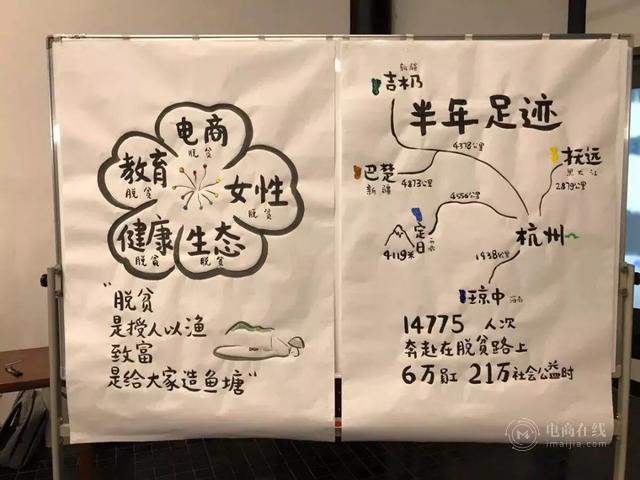 电商
脱贫
教育
脱贫
女性
脱贫
健康
脱贫
生态
脱贫
"脱贫
是授人以渔
致富
是给大家造鱼塘"
新疆
吉木乃
半年足迹
4378公里
巴楚
新疆
4873公里
抚远
黑龙江
2879公里
4556公里
定日
4119米
杭州
1438公里
琼中
海南
14775 人次
奔赴在脱贫路上
6万员工 21万社会公益时
电商在线
imaijia.com